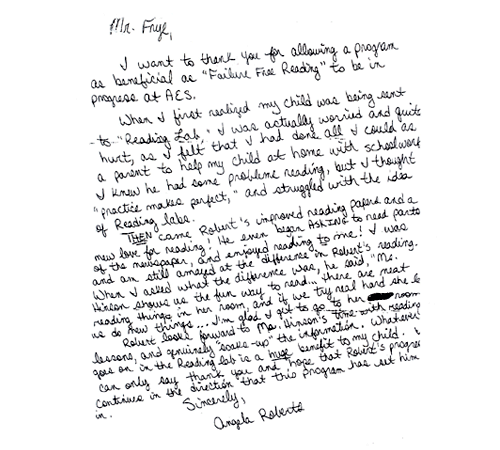 Mr. Frye,
I want to thank you for allowing a program
as beneficial as "Failure Free Reading" to be in
progress at AES.
When I first realized my child was being sent
to "Reading Lab," I was actually worried and quite
hurt, as I felt that I had done all I could as
a parent to help my child at home with schoolwork
I knew he had some problems reading, but I thought
"practice makes perfect," and struggled with the idea
of Reading labs.
THEN came Robert's improved reading papers and a
new love for reading! He even began ASKING to read parts
of the newspaper, and enjoyed reading to me! I was
and am still amazed at the difference in Robert's reading.
When I asked what the difference was, he said, "Ms.
Hinson shows us the fun way to read... there are neat
reading things in her room, and if we try real hard she
us do new things... I'm glad I get to go to her room
Robert looks forward to Ms. Hinson's time with reading
lessons, and genuinely "soaks-up" the information. Whatever
goes on in the Reading lab is a huge benefit to my child. I
can only say thank you and hope that Robert's progress
continues in the direction that this program has set him
in.
Sincerely,
Angela Roberts